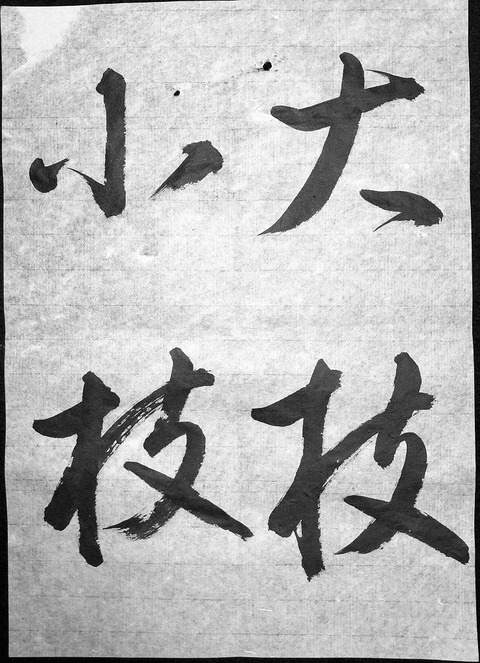 大枝
小枝